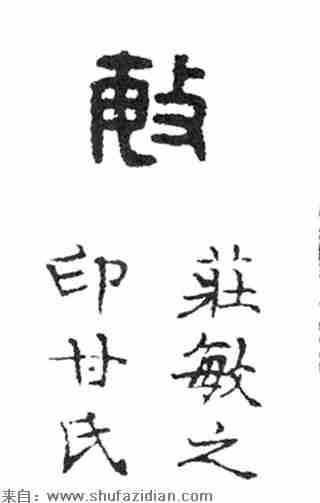 敏
莊敏之
印甘氏
来自：www.shufazidian.com